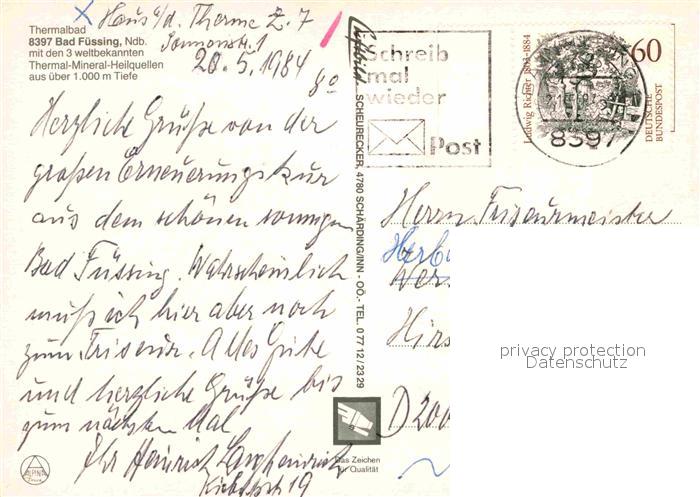 Haus a/d. Therme Z. 7
Sonnenstr. 1
20.5.1984
Thermalbad
8397 Bad Füssing, Ndb.
mit den 3 weltbekannten
Thermal-Mineral-Heilquellen
aus über 1.000 m Tiefe
Herzliche Grüße von der
großen Erneuerungskur
aus dem schönen sonnigen
Bad Füssing. Wahrscheinlich
muß ich hier aber noch
zum Friseur. Alles Gute
und herzliche Grüße bis
zum nächsten Mal
Ihr Heinrich
19
ALPINA
Luftbild
SCHEURECKER, 4780 SCHÄRDING/INN - OÖ. - TEL. 0 77 12 / 23 29
Das Zeichen
für Qualität
Schreib
mal
wieder
Post
8397
Ludwig Richter 1803-1884
60
DEUTSCHE
BUNDESPOST
Herrn Friseurmeister
Herb
Hirs
D 200
privacy protection
Datenschutz